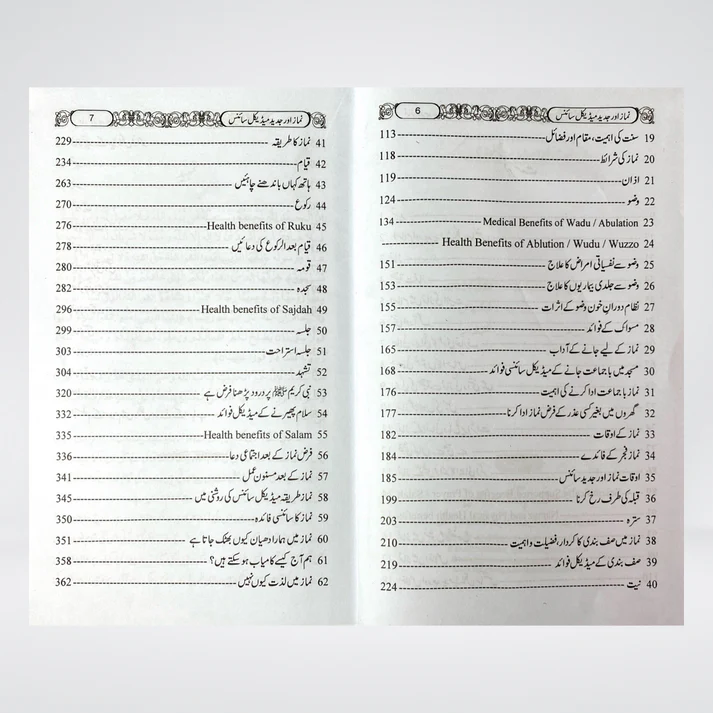 نماز اور جدید میڈیکل سائنس 6
19 سنت کی اہمیت، مقام اور فضائل 113
20 نماز کی شرائط 118
21 اذان 119
22 وضو 124
23 Medical Benefits of Wadu / Abulation 134
24 Health Benefits of Ablution / Wudu / Wuzzo
25 وضو سے نفسیاتی امراض کا علاج 151
26 وضو سے جلدی بیماریوں کا علاج 153
27 نظام دوران خون وضو کے اثرات 155
28 مسواک کے فوائد 157
29 نماز کے لیے جانے کے آداب 165
30 مسجد میں باجماعت جانے کے میڈیکل سائنسی فوائد 168
31 نماز باجماعت ادا کرنے کی اہمیت 176
32 گھروں میں بغیر کسی عذر کے فرض نماز ادا کرنا 177
33 نماز کے اوقات 182
34 نماز فجر کے فائدے 184
35 اوقات نماز اور جدید سائنس 185
36 قبلہ کی طرف رخ کرنا 199
37 سترہ 203
38 نماز میں صف بندی کا کردار، فضیلت و اہمیت 210
39 صف بندی کے میڈیکل فوائد 219
40 نیت 224
نماز اور جدید میڈیکل سائنس 7
41 نماز کا طریقہ 229
42 قیام 234
43 ہاتھ کہاں باندھنے چاہئیں 263
44 رکوع 270
45 Health benefits of Ruku 276
46 قیام بعد الرکوع کی دعائیں 278
47 قومہ 280
48 سجدہ 282
49 Health benefits of Sajdah 296
50 جلسہ 299
51 جلسہ استراحت 303
52 تشہد 304
53 نبی کریم ﷺ پر درود پڑھنا فرض ہے 320
54 سلام پھیرنے کے میڈیکل فوائد 332
55 Health benefits of Salam 335
56 فرض نماز کے بعد اجتماعی دعا 336
57 نماز کے بعد مسنون عمل 341
58 نماز طریقہ میڈیکل سائنس کی روشنی میں 345
59 نماز کا سائنسی فائدہ 350
60 نماز میں ہمارا دھیان کیوں بھٹک جاتا ہے 351
61 ہم آج کیسے کامیاب ہو سکتے ہیں؟ 358
62 نماز میں لذت کیوں نہیں 362